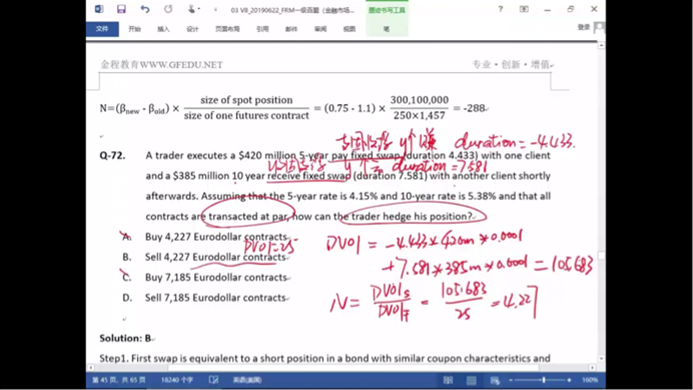 03 V8_20190622_FRM一级百题（金融市场...
墨迹书写工具
登录
文件
开始
插入
设计
页面布局
引用
邮件
审阅
视图
笔
金程教育WWW.GFEDU.NET
专业·创新·增值
N=(βnew - βold) × size of spot position / size of one futures contract = (0.75 - 1.1) × 300,100,000 / 250×1,457 = -288
duration = -4.433.
Q-72. A trader executes a $420 million 5-year pay fixed swap (duration 4.433) with one client
duration = 7.581
and a $385 million 10 year receive fixed swap (duration 7.581) with another client shortly
afterwards. Assuming that the 5-year rate is 4.15% and 10-year rate is 5.38% and that all
contracts are transacted at par, how can the trader hedge his position?
A. Buy 4,227 Eurodollar contracts
DV01=25
DV01 = -4.433*420m*0.0001
B. Sell 4,227 Eurodollar contracts
+7.581*385m*0.0001 = 105.683
C. Buy 7,185 Eurodollar contracts
D. Sell 7,185 Eurodollar contracts
N = DV01s / DV01F = 105.683 / 25 = 4.227
Solution: B
Step1. First swap is equivalent to a short position in a bond with similar coupon characteristics and
第 45 页，共 65 页
18240 个字
英语(美国)
100%